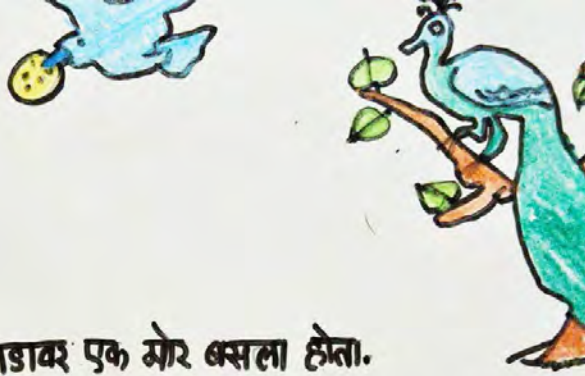 डावर एक मोर बसला होता.